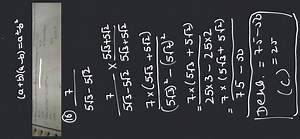 (a+b)(a-b)=a²-b²
(16) 7 / 5√3-5√2
7 / 5√3-5√2 × 5√3+5√2 / 5√3+5√2
7×(5√3+5√2) / (5√3)²-(5√2)²
= 7×(5√3-5√2) / 25×3-25×2
= 7×(5√3+5√2) / 75-50
Deno. = 75-50
(C) = 25